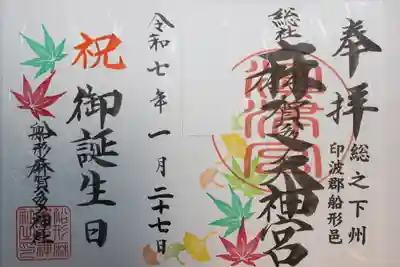 奉拝
総之下州
印波郡船形邑
総社
麻賀多大神宮
令和七年一月二十七日
祝
御誕生日
船形麻賀多神社